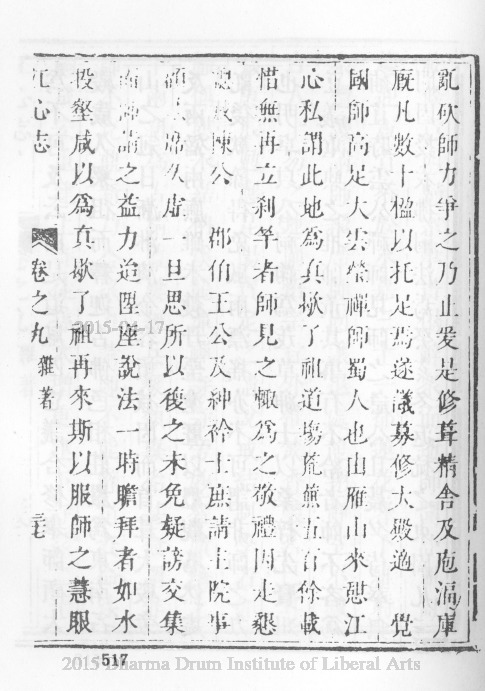 亂砍師力爭之乃止爰是修葺精舍及庖湢庫
厩凡數十楹以托足焉遂議募修大殿適 覺
國師高足大雲瑩禪師蜀人也由雁山來憩江
心私謂此地為真歇了祖道塲荒蕪五百餘載
惜無再立刹竿者師見之輒為之敬禮因走懇
陳公 郡伯王公及紳衿士庶請主院事
席久虛一旦思所以後之未免疑謗交集
請之益力迨陞座說法一時瞻拜者如水
投壑咸以為真歇了祖再來斯以服師之慧眼
江心志 卷之九 雜著
2015-04-17
517
2015 Dharma Drum Institute of Liberal Arts